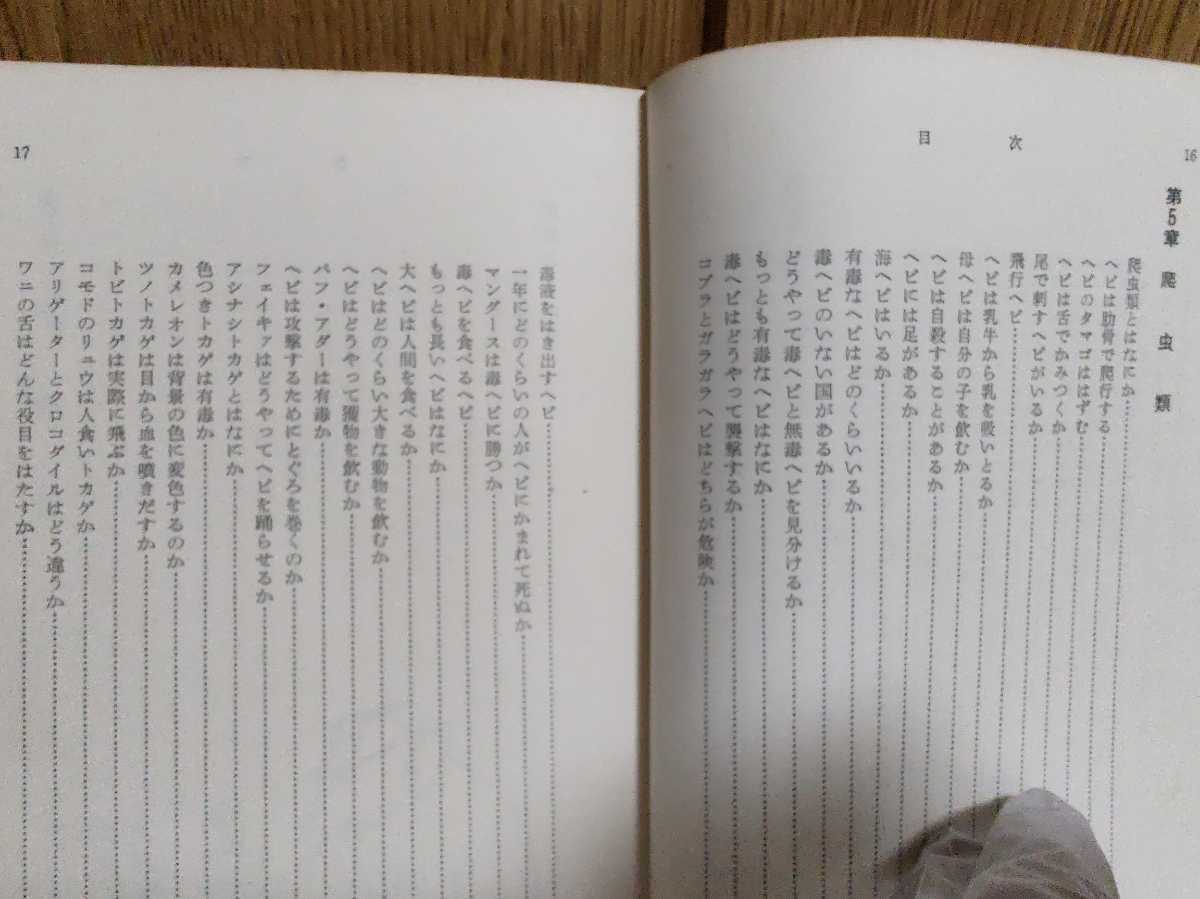 16
目次
第5章 爬虫類
爬虫類とはなにか
ヘビは肋骨で爬行する
ヘビのタマゴははずむ
ヘビは舌でかみつくか
尾で刺すヘビがいるか
飛行ヘビ
ヘビは乳牛から乳を吸いとるか
母ヘビは自分の子を飲むか
ヘビは自殺することがあるか
ヘビには足があるか
海ヘビはいるか
有毒なヘビはどのくらいいるか
毒ヘビのいない国があるか
どうやって毒ヘビと無毒ヘビを見分けるか
もっとも有毒なヘビはなにか
毒ヘビはどうやって襲撃するか
コブラとガラガラヘビはどちらが危険か
17
毒液をはき出すヘビ
一年にどのくらいの人がヘビにかまれて死ぬか
マングースは毒ヘビに勝つか
毒ヘビを食べるヘビ
もっとも長いヘビはなにか
大ヘビは人間を食べるか
ヘビはどのくらい大きな動物を飲むか
ヘビはどうやって獲物を飲むか
パフ・アダーは有毒か
ヘビは攻撃するためにとぐろを巻くのか
フェイキァはどうやってヘビを踊らせるか
アシナシトカゲとはなにか
色つきトカゲは有毒か
カメレオンは背景の色に変色するのか
ツノトカゲは目から血を噴きだすか
トビトカゲは実際に飛ぶか
コモドのリュウは人食いトカゲか
アリゲーターとクロコダイルはどう違うか
ワニの舌はどんな役目をはたすか